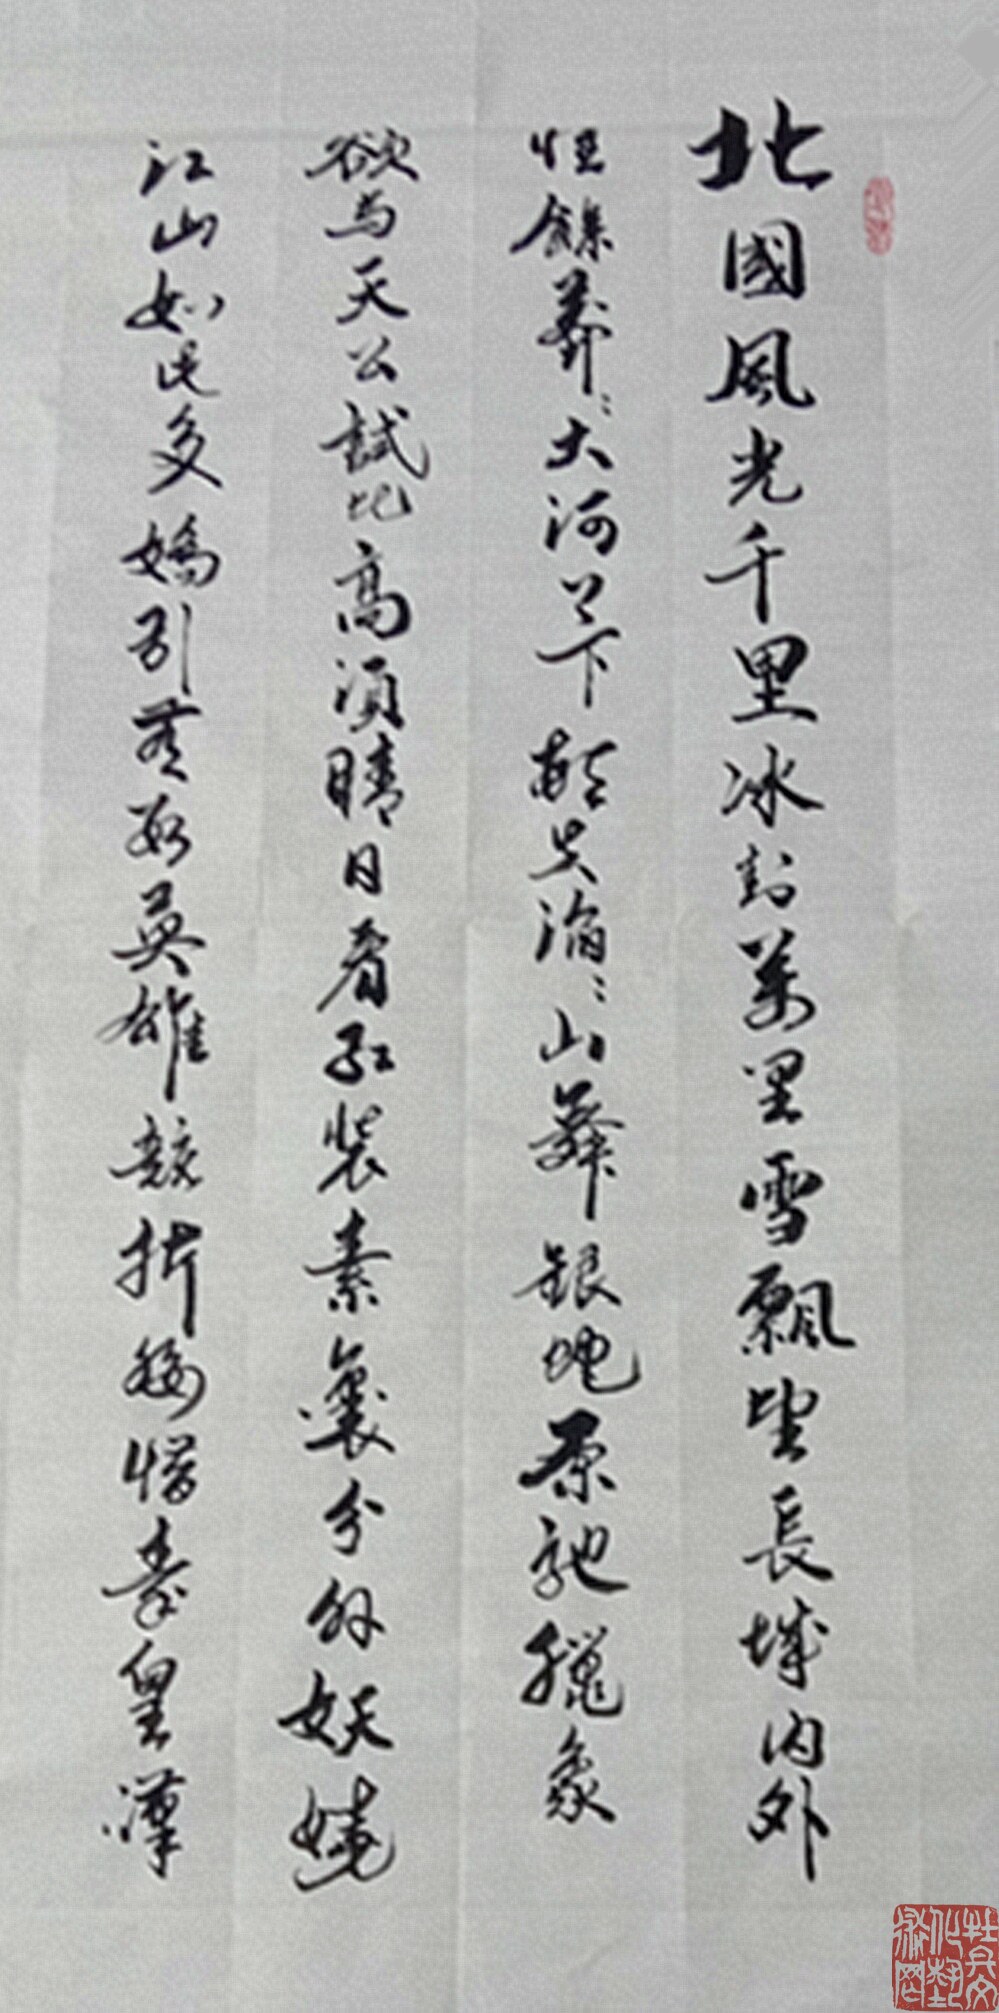 北國風光千里冰封萬里雪飄望長城內外
惟餘莽〻大河上下頓失滔〻山舞銀蛇原馳臘象
欲与天公試比高須晴日看紅裝素裹分外妖嬈
江山如此多嬌引無數英雄競折腰惜秦皇漢